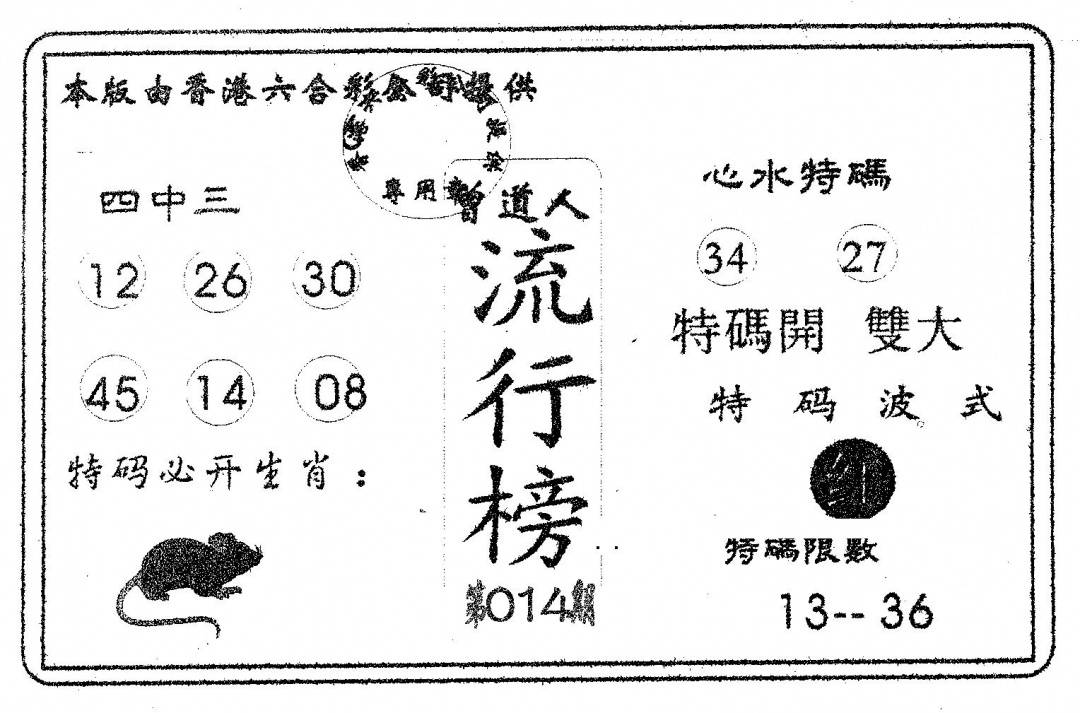 本版由香港六合彩公司提供
專用章
四中三
12 26 30
45 14 08
特码必开生肖：
曾道人
流行榜
第014期
心水特碼
34 27
特碼開 雙大
特码波式
红
特碼限数
13-- 36